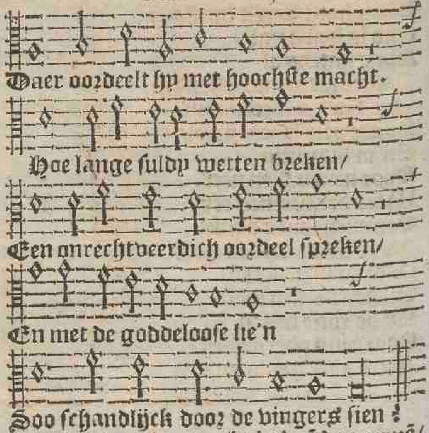 Daer oordeelt hy met hoochste macht.
Hoe lange suldy wetten breken/
Een onrechtveerdich oordeel spreken/
En met de goddeloose lie'n
Soo schandlijck door de vingers sien?